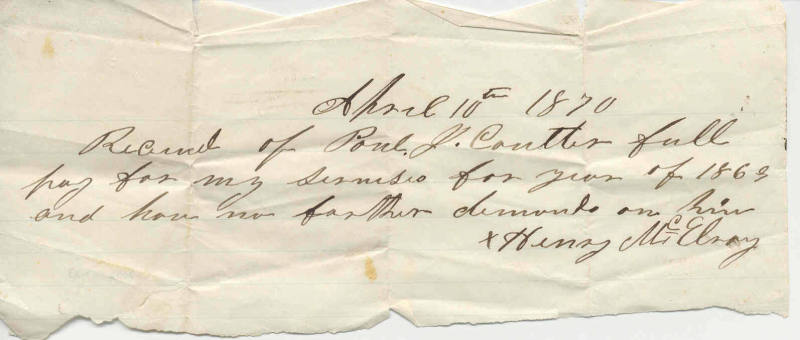 April 10th 1870
Recind of Paul. J. Coutter full
pay for my servises for year of 1869
and have no farther demands on him
x Henry McElroy